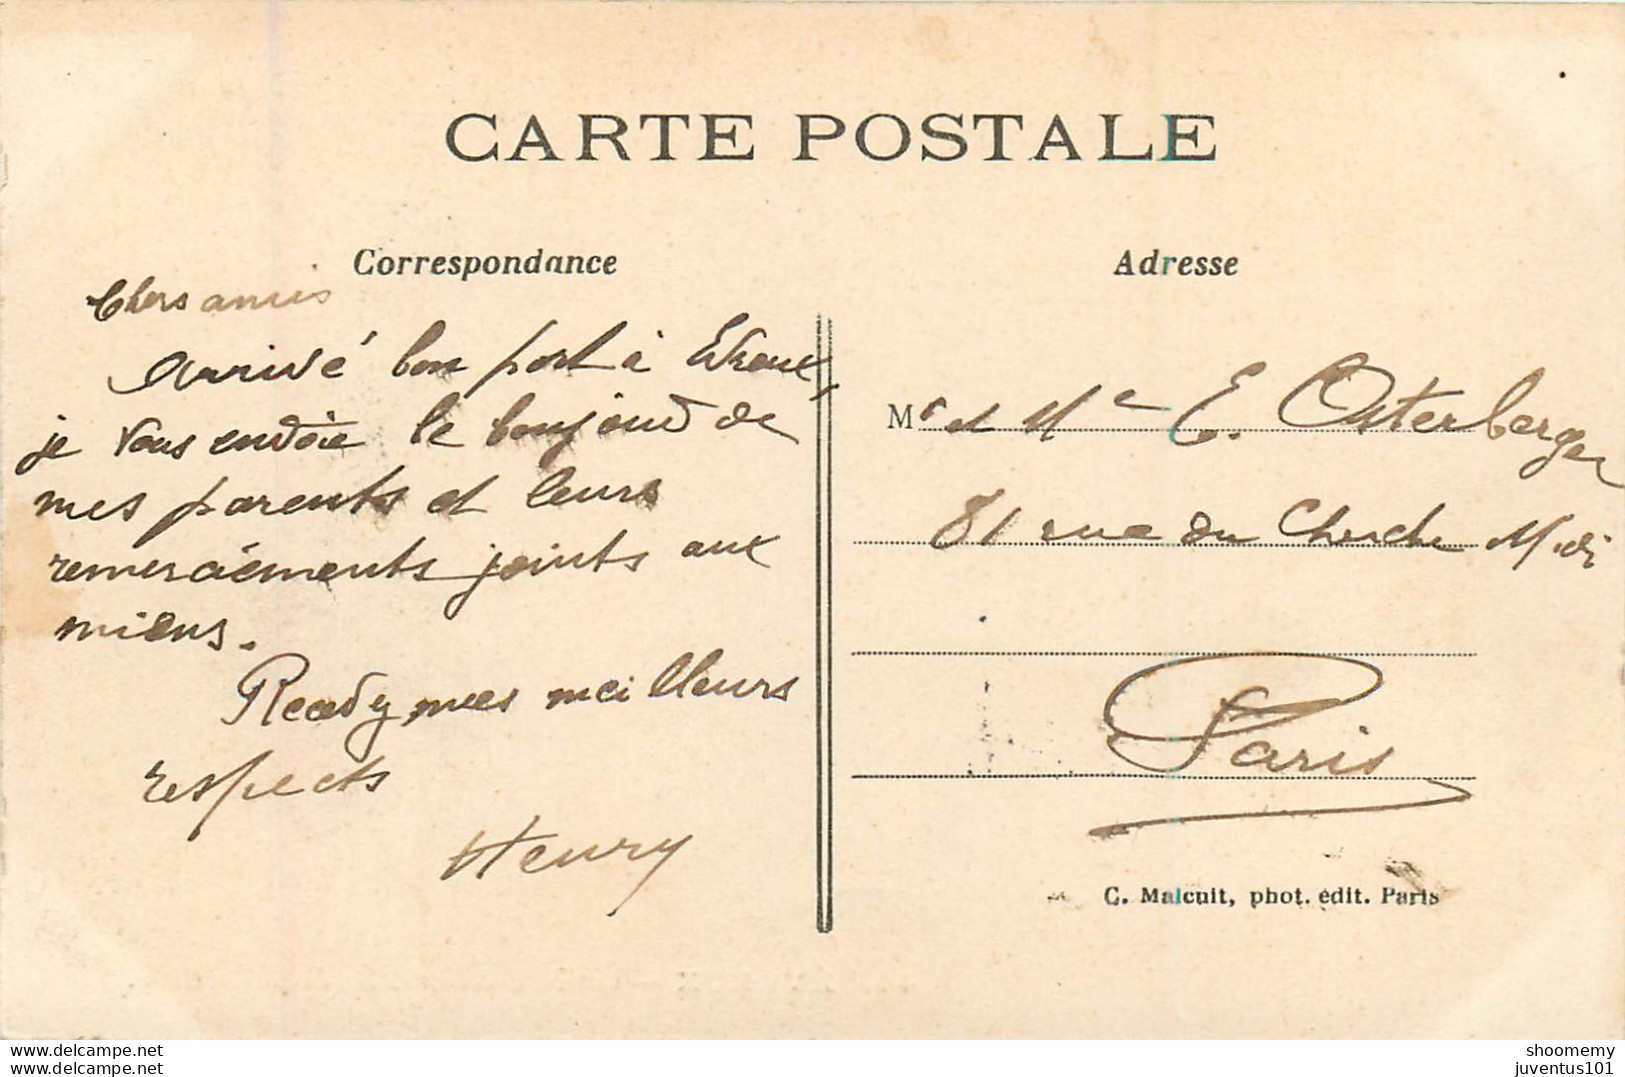 CARTE POSTALE
Correspondance
Chers amis
Arrivé bon port à Evreux,
je vous envoie le bonjour de
mes parents et leurs
remerciements joints aux
miens.
mes meilleurs
respects
Henry
Adresse
Mr et Me E. Osterberger
81 rue du Cherche Midi
Paris
C. Malcuit, phot. edit. Paris
www.delcampe.net
shoomemy
juventus101